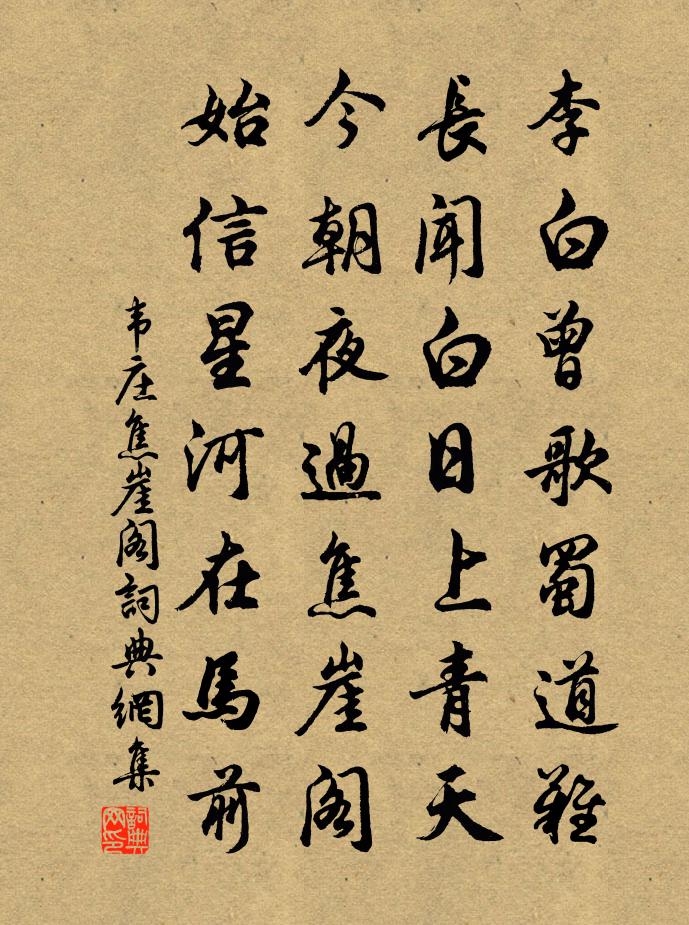 李白曾歌蜀道難
長聞白日上青天
今朝夜過焦崖閣
始信星河在馬前
韦庄焦崖阁詞典網集
詞典网印